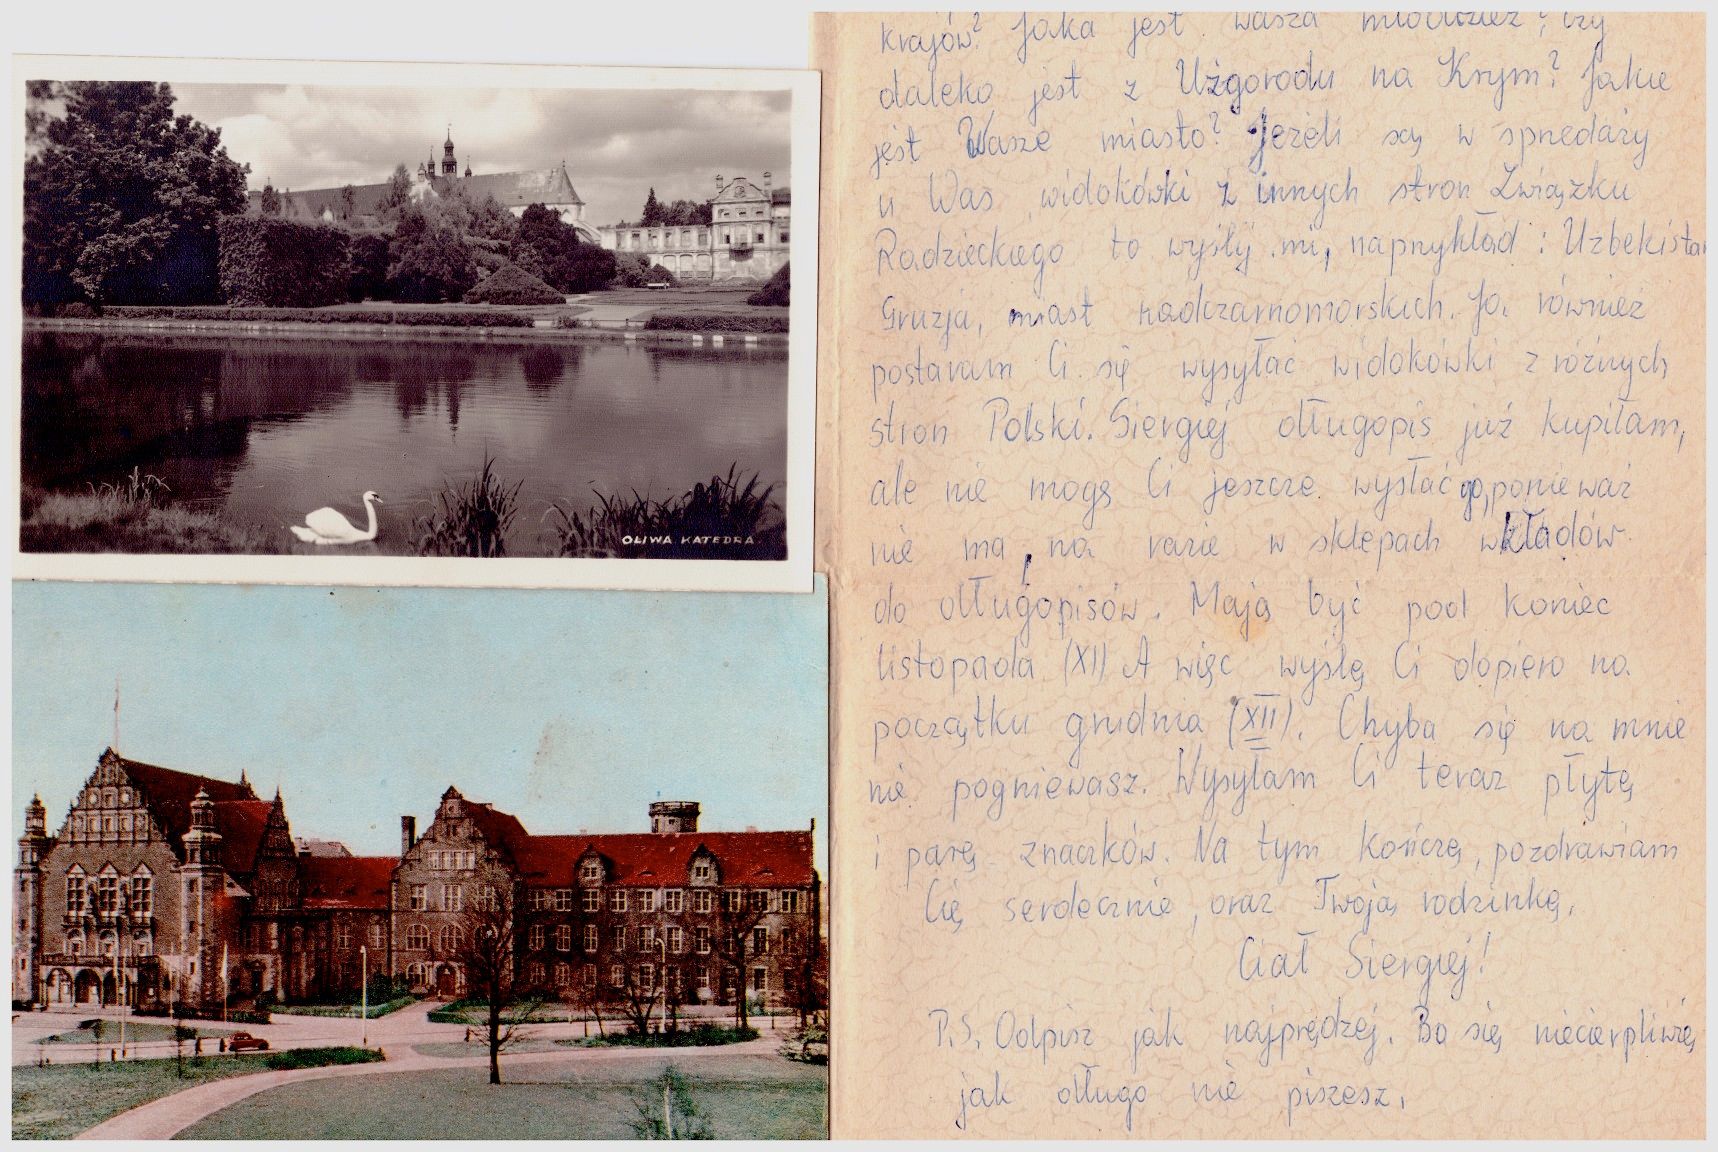 OLIWA KATEDRA
krajów? Jaka jest wasza młodzież? czy
daleko jest z Użgorodu na Krym? Jakie
jest Wasze miasto? Jeżeli są w sprzedaży
u Was widokówki z innych stron Związku
Radzieckiego to wyślij mi, naprzykład: Uzbekistan
Gruzja, miast nadczarnomorskich. Ja również
postaram Ci się wysyłać widokówki z różnych
stron Polski. Siergiej długopis już kupiłam,
ale nie mogę Ci jeszcze wysłać go, ponieważ
nie ma na razie w sklepach wkładów
do długopisów. Mają być pod koniec
listopada (XI) A więc wyślę Ci dopiero na
początku grudnia (XII). Chyba się na mnie
nie pogniewasz. Wysyłam Ci teraz płytę
i parę znaczków. Na tym kończę, pozdrawiam
Cię serdecznie, oraz Twoją rodzinkę.
Ciał Siergiej!
P.S. Odpisz jak najprędzej. Bo się niecierpliwię
jak długo nie piszesz.